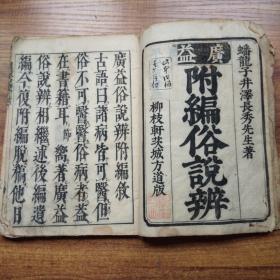 蟠龍子井澤長秀先生著
廣益
附編俗說辨
柳枝軒茨城方道版
廣益俗說辨附編敘
古語曰諸病皆可醫但
俗不可醫也俗病者益
在書籍耳
嚮著廣益
俗說辨相繼述後編遺
編今復附編脫稿他日